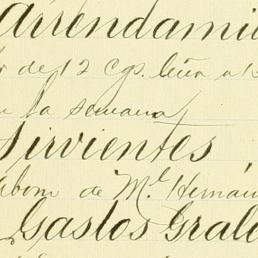 arrendami
de 12 cgs. leña a
la semana
Sirvientes
de M. Hernán
Gastos Grale